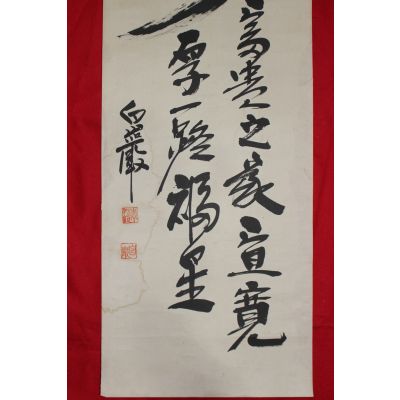 富貴之家宜寛
厚一路福星
白巖